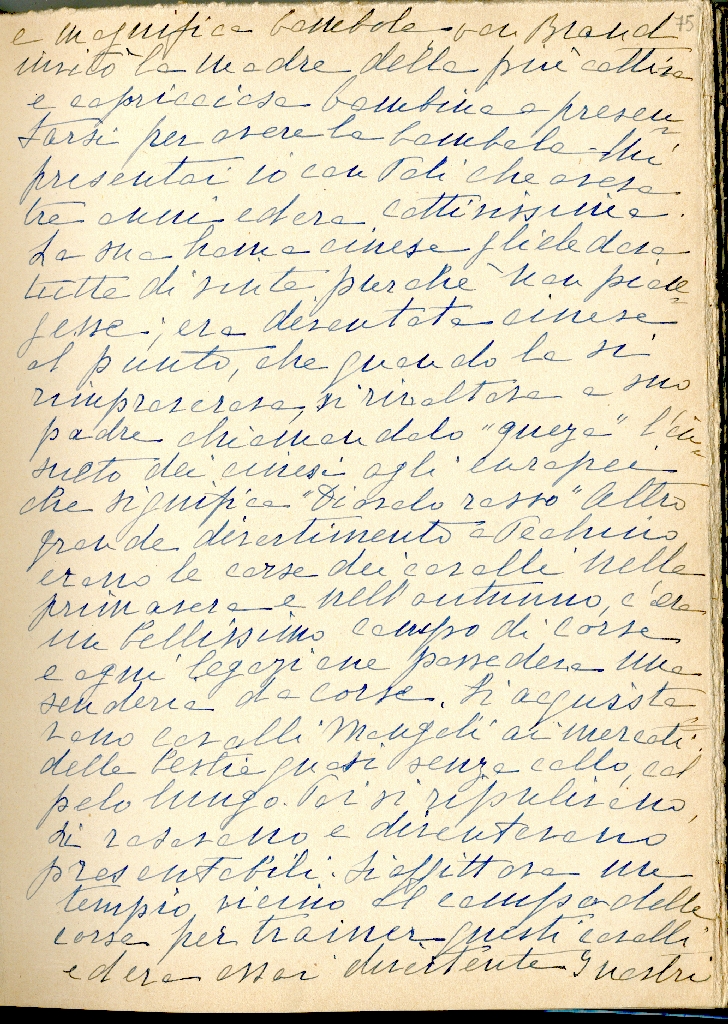 75
e magnifica bambola von Brand
invitò la madre della più cattiva
e capricciosa bambina a presen-
tarsi per avere la bambola. Mi
presentai io con Poli che aveva
tre anni ed era cattivissima.
La sua hama cinese gliele dava
tutte di vinte purché non pian-
gesse; era diventata cinese
al punto, che quando la si
rimproverava, si rivoltava a suo
padre chiamandolo "queza" l'in-
sulto dei cinesi agli europei
che significa "Diavolo rosso" Altro
grande divertimento a Pechino
erano le corse dei cavalli nella
primavera e nell'autunno, c'era
un bellissimo campo di corse
e ogni legazione possedeva una
scuderia da corse. Si acquista
vano cavalli Mongoli ai mercati
delle bestie quasi senza collo, col
pelo lungo. Poi si ripulivano,
si rasavano e diventavano
presentabili. Si affittava un
tempio vicino al campo delle
corse per trainer questi cavalli
ed era assai divertente. I nostri